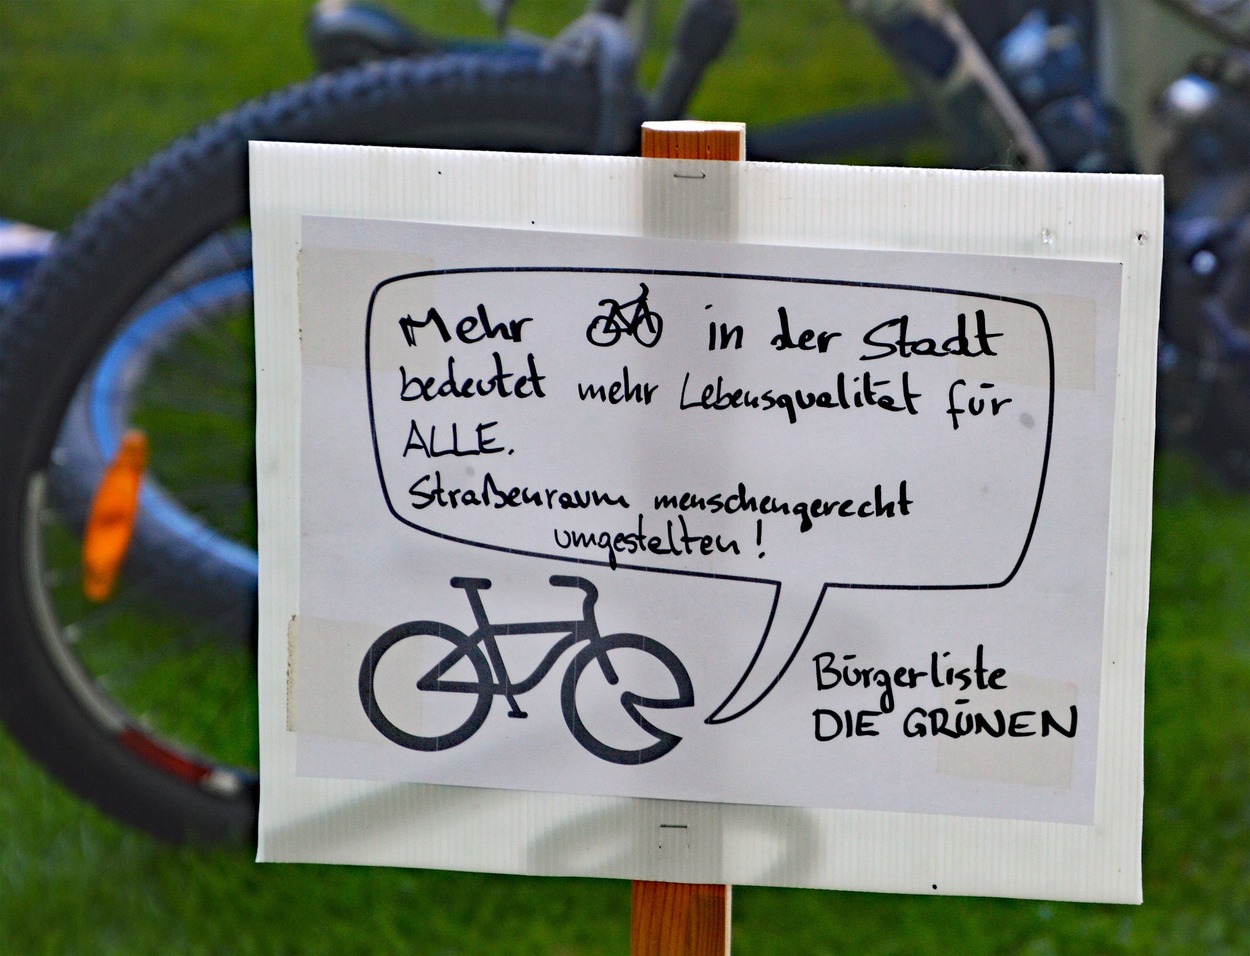 Mehr in der Stadt
bedeutet mehr Lebensqualität für
ALLE.
Straßenraum menschengerecht
umgestalten!
Bürgerliste
DIE GRÜNEN